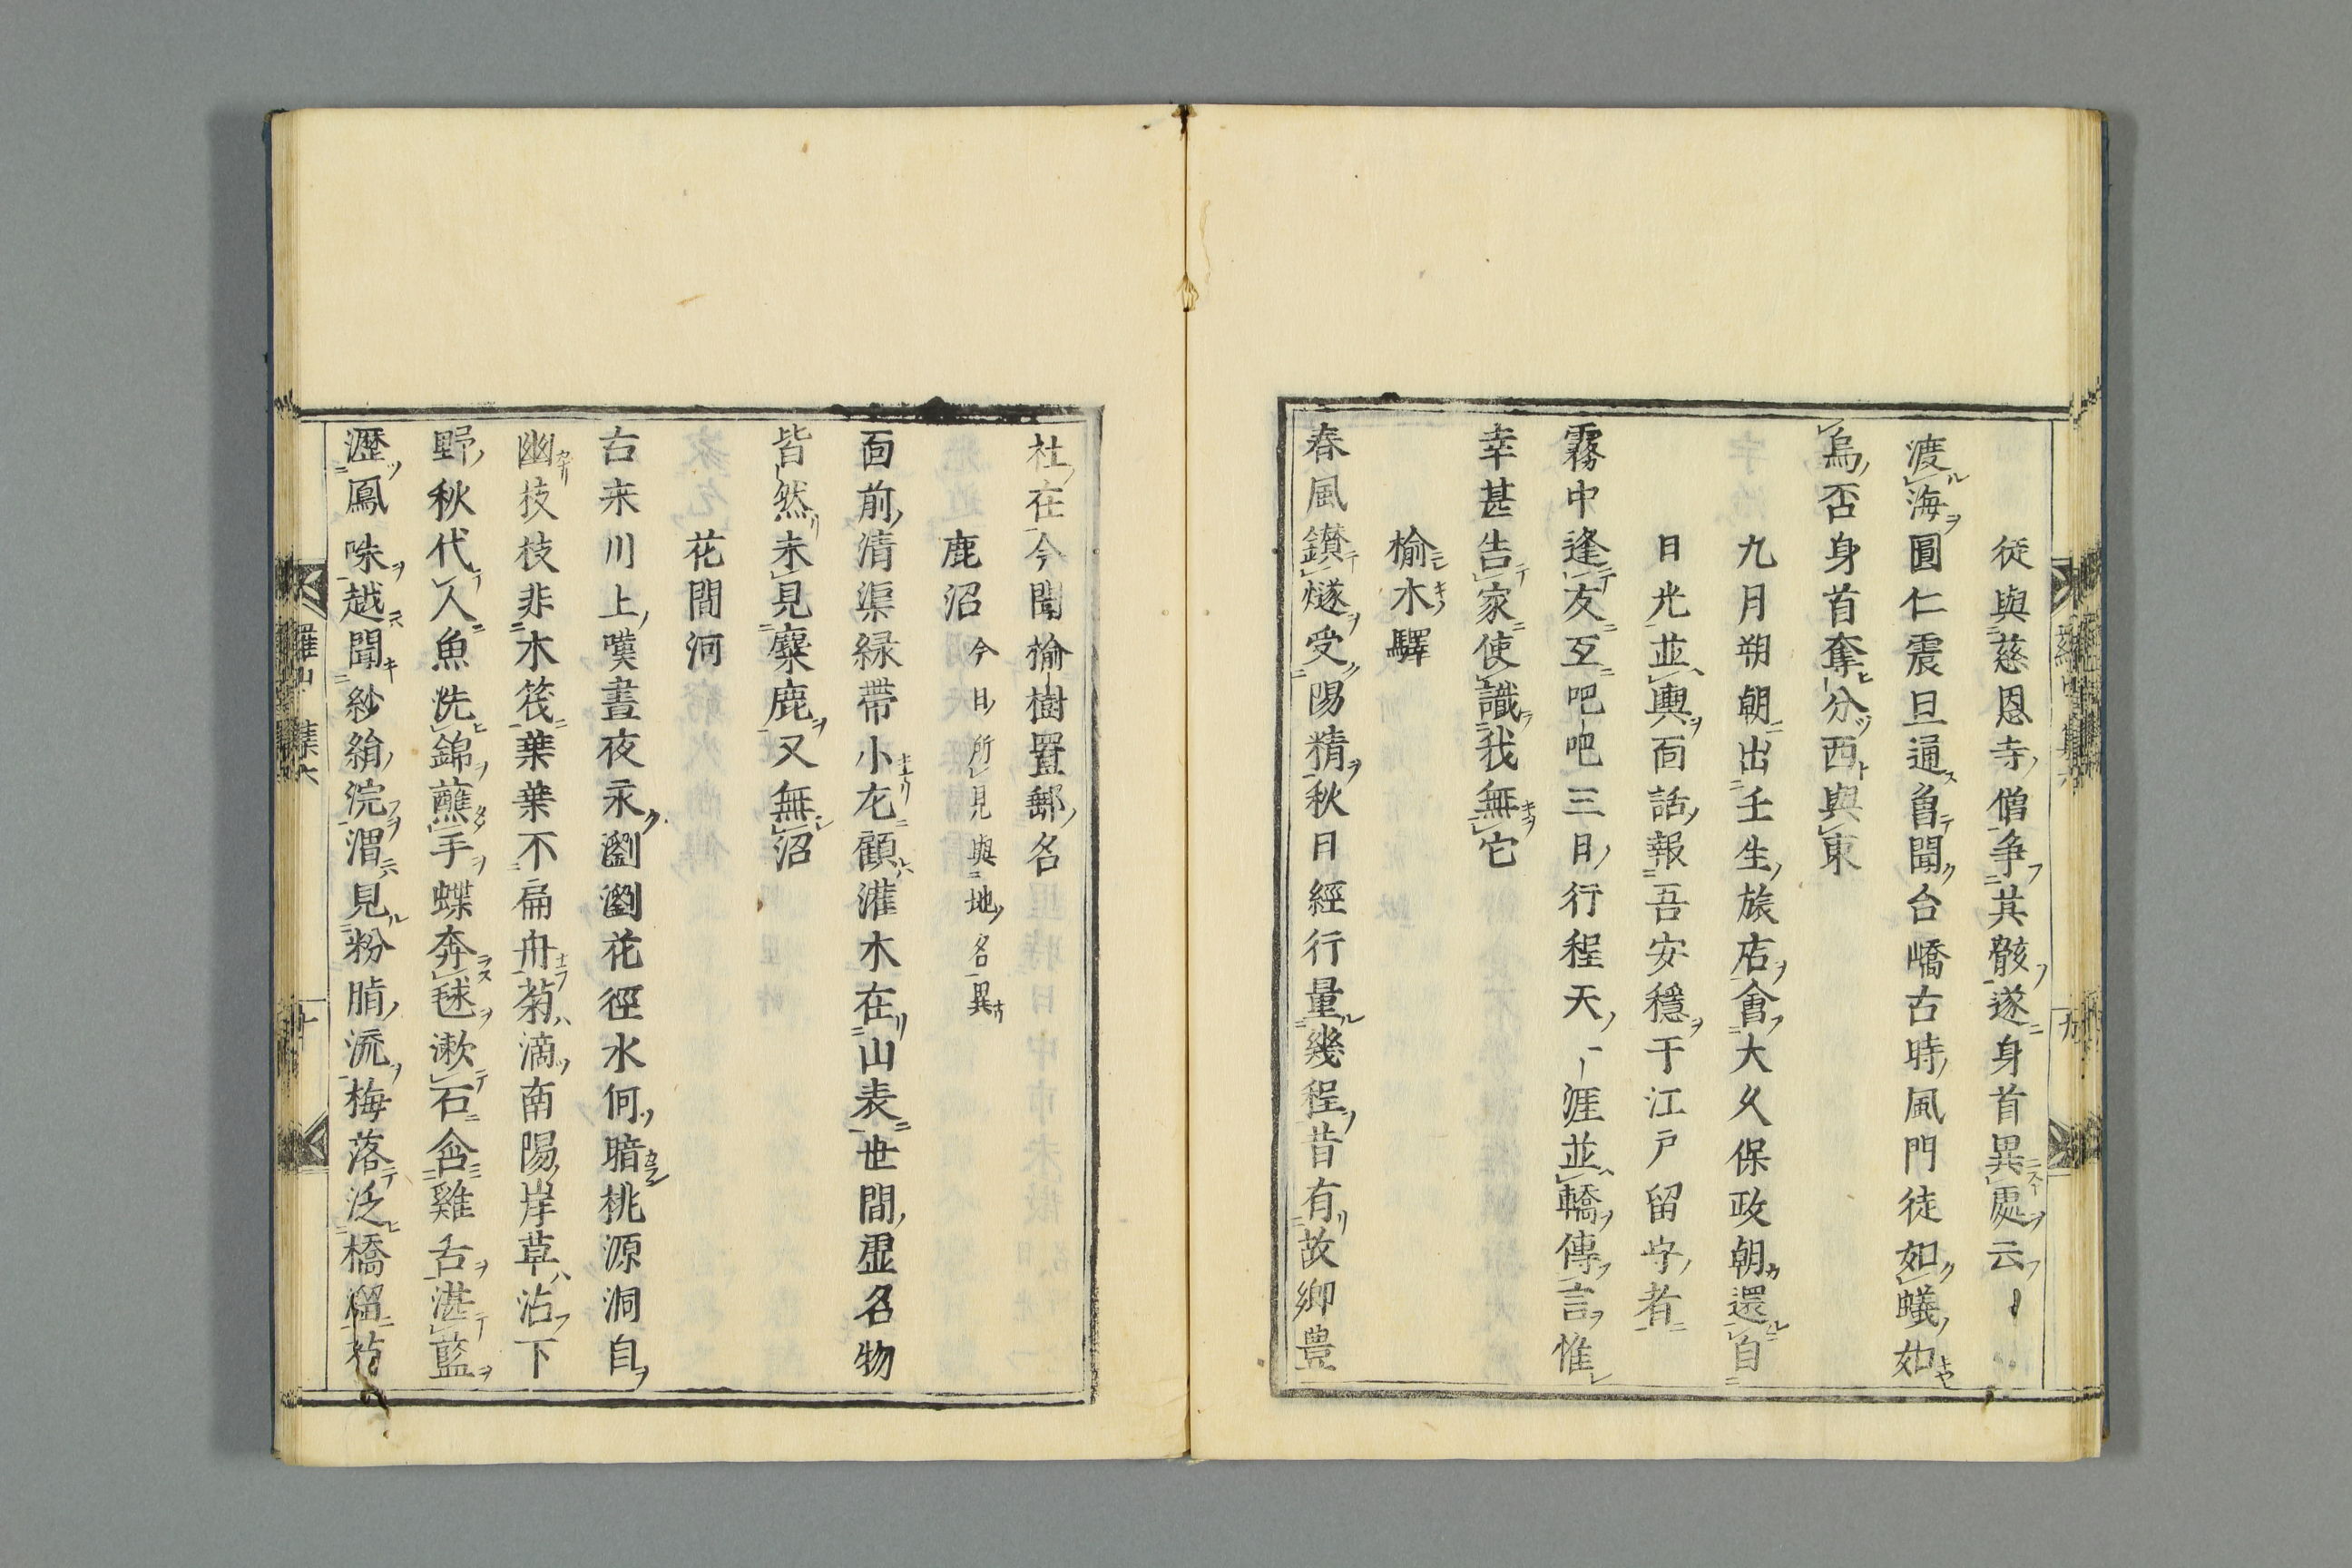 徒與慈恩寺僧爭其骸遂身首異處云
渡海圓仁震旦通曾聞台嶠古時風門徒如蟻如
烏否身首奪分西與東
九月朔朝出壬生旅店會大久保政朝還自
日光並輿面話報吾安穩于江戸留守者
霧中逢友互吧吧三日行程天一涯並轎傳言惟
幸甚告家使識我無它
榆木驛
春風鑚燧受陽精秋日經行量幾程昔有故鄉豊
社在今聞榆樹置郵名
鹿沼 今日所見與地名異
面前清渠緑帶小尨顧灌木在山表世間虚名物
皆然未見麋鹿又無沼
花間河
古来川上嘆晝夜永瀏瀏花徑水何暗桃源洞自
幽技枝非木筏葉葉不扁舟菊滴南陽岸草沾下
野秋代人魚洗錦蘸手蝶奔毬漱石含雞舌湛藍
瀝鳳咮越聞紗絹浣渭見粉脂流梅落泛橋
羅山 集六
十
九